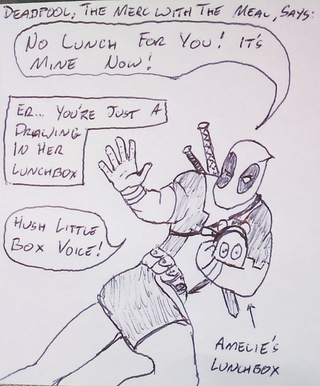 DEADPOOL, THE MERC WITH THE MEAL, SAYS:
NO LUNCH FOR YOU! IT'S
MINE NOW!
ER... YOU'RE JUST A
DRAWING
IN HER
LUNCHBOX
HUSH LITTLE
BOX VOICE!
AMELIE'S
LUNCHBOX